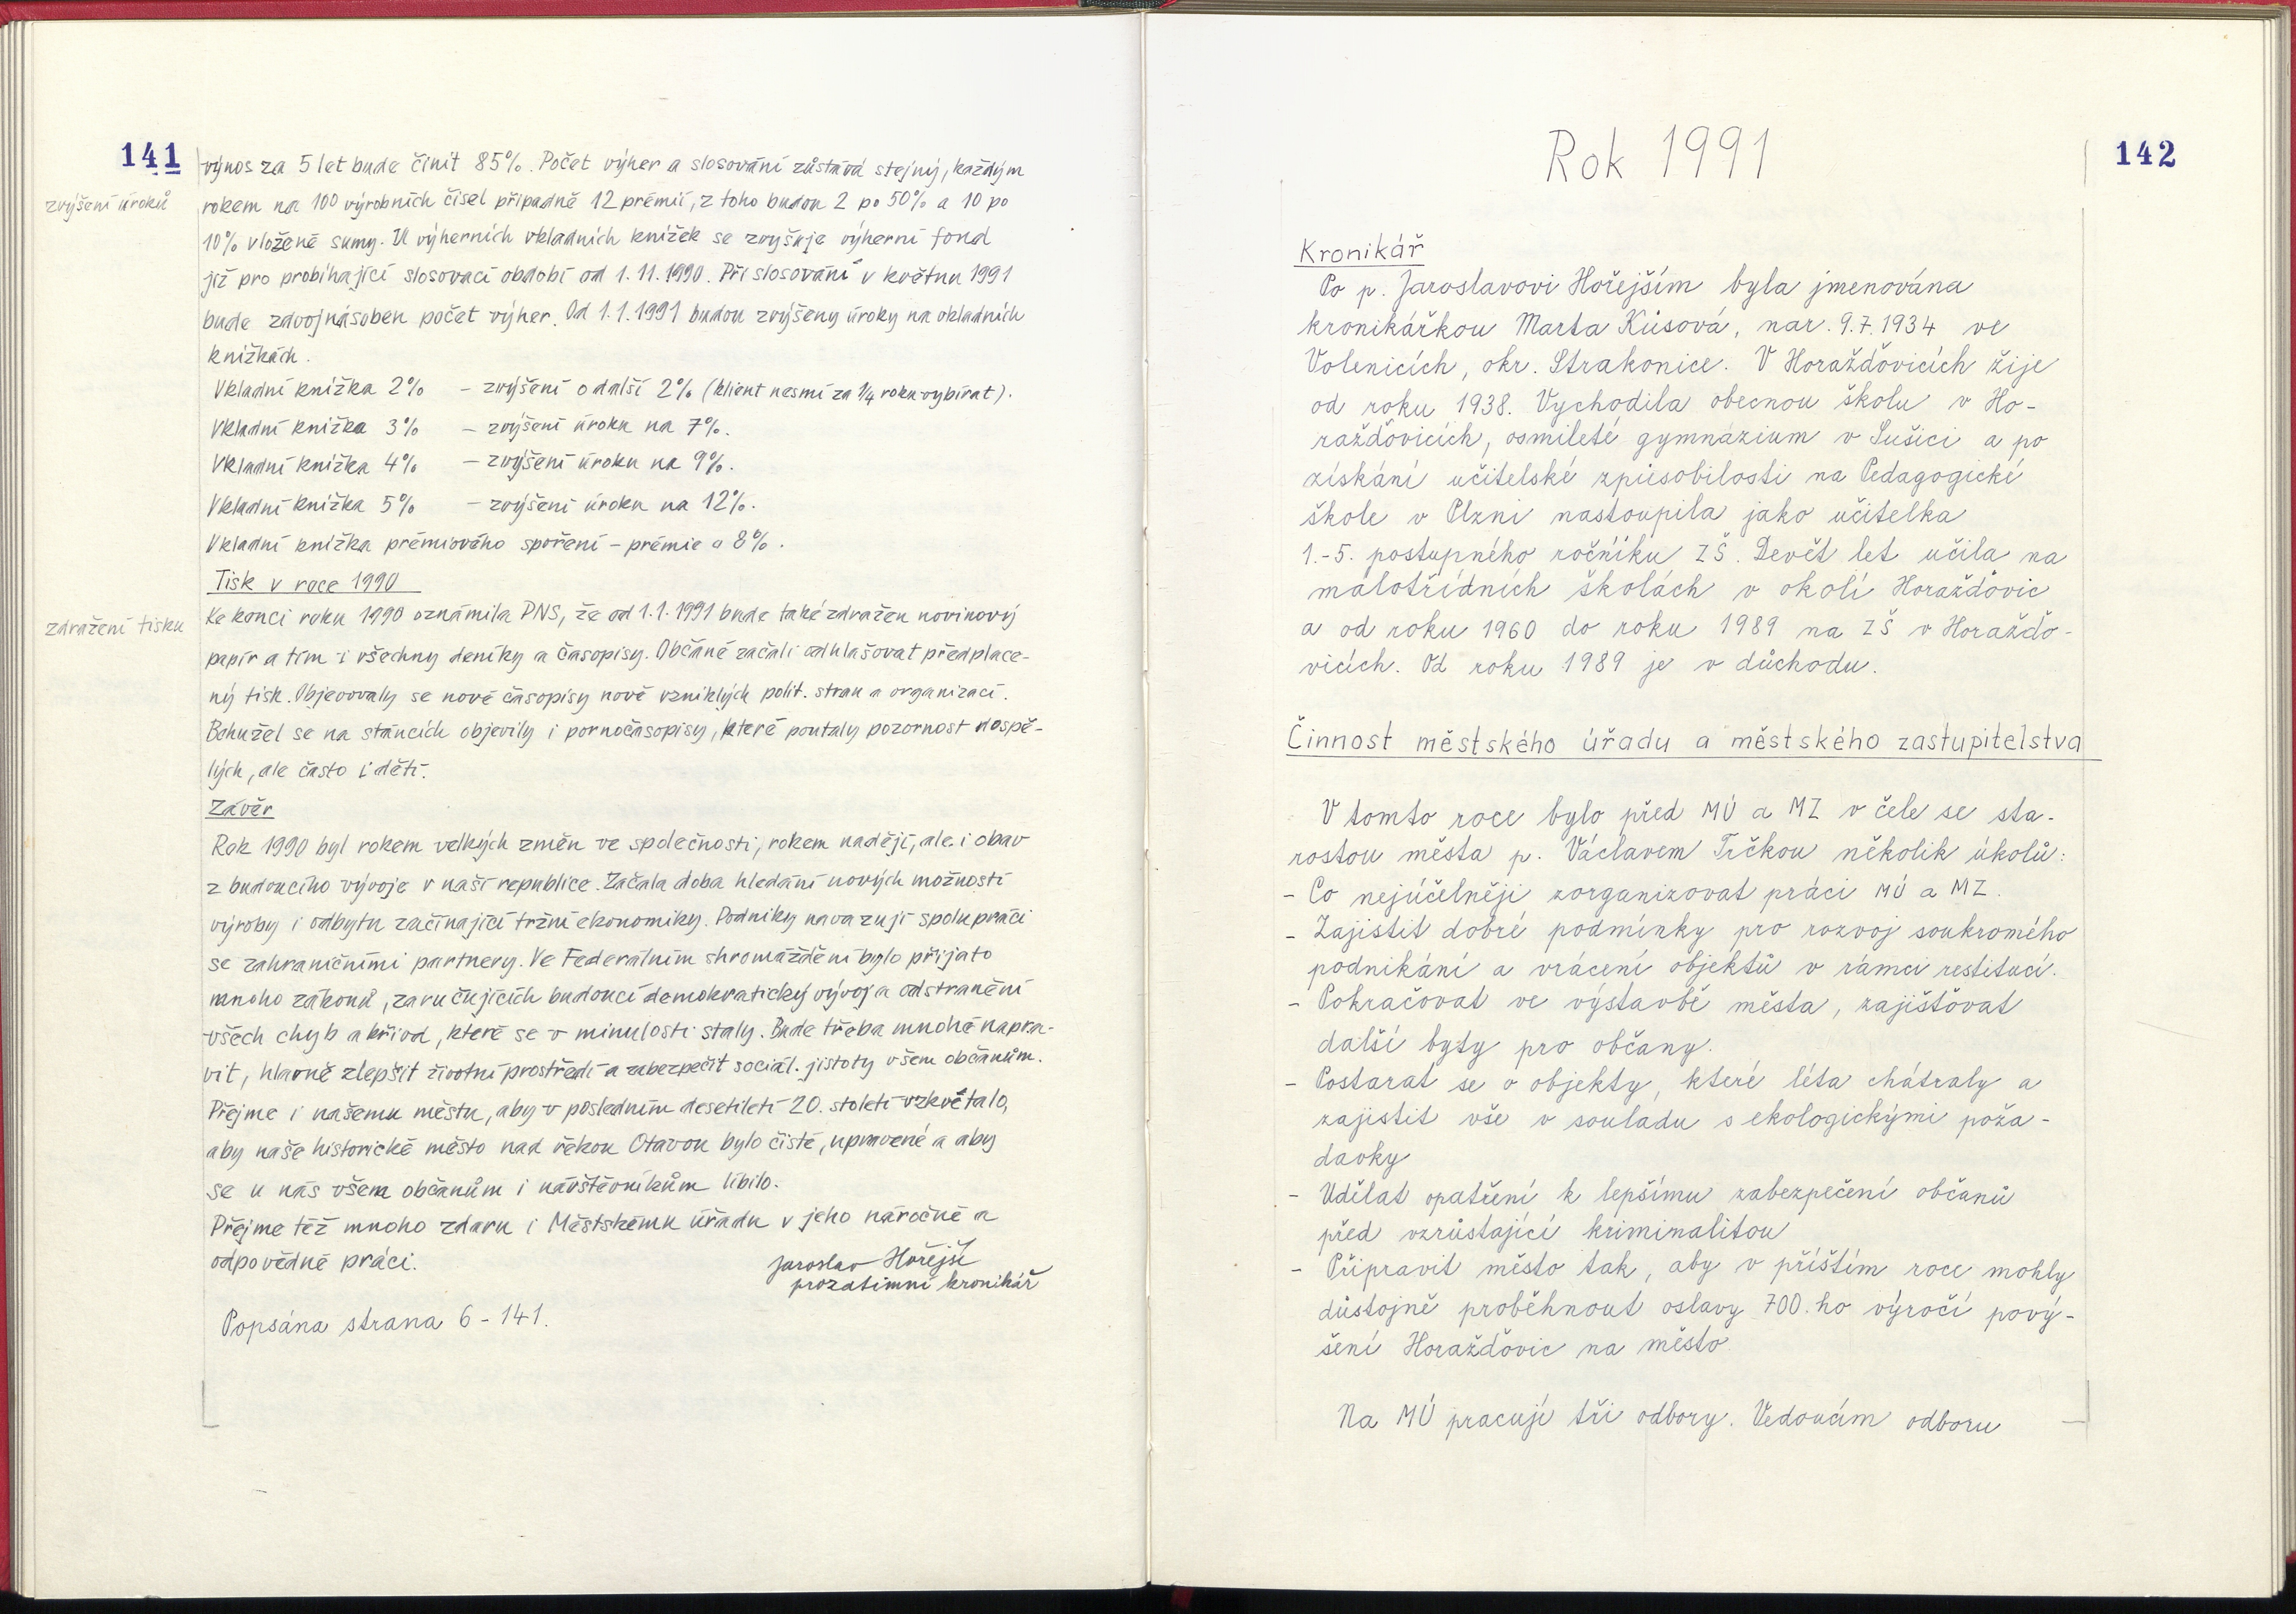 141
výnos za 5 let bude činit 85%. Počet výher a slosování zůstává stejný, každým
zvýšení úroků
rokem na 100 výrobních čísel připadně 12 prémií, z toho budou 2 po 50% a 10 po
10% vložené sumy. U výherních vkladních knížek se zvyšuje výherní fond
již pro probíhající slosovací období od 1.11.1990. Při slosování v květnu 1991
bude zdvojnásoben počet výher. Od 1.1.1991 budou zvýšeny úroky na vkladních
knížkách.
Vkladní knížka 2% – zvýšení o další 2% (klient nesmí za 1/4 roku vybírat).
Vkladní knížka 3% – zvýšení úroku na 7%.
Vkladní knížka 4% – zvýšení úroku na 9%.
Vkladní knížka 5% – zvýšení úroku na 12%.
Vkladní knížka prémiového spoření – prémie a 8%.
Tisk v roce 1990
Ke konci roku 1990 oznámila PNS, že od 1.1.1991 bude také zdražen novinový
zdražení tisku
papír a tím i všechny deníky a časopisy. Občané začali odhlašovat předplace-
ný tisk. Objevovaly se nové časopisy nově vzniklých polit. stran a organizací.
Bohužel se na stáncích objevily i pornočasopisy, které poutaly pozornost dospě-
lých, ale často i dětí.
Závěr
Rok 1990 byl rokem velkých změn ve společnosti, rokem nadějí, ale i obav
z budoucího vývoje v naší republice. Začala doba hledání nových možností
výroby i odbytu začínající tržní ekonomiky. Podniky navazují spolupráci
se zahraničními partnery. Ve Federálním shromáždění bylo přijato
mnoho zákonů, zaručujících budoucí demokratický vývoj a odstranění
všech chyb a křivd, které se v minulosti staly. Bude třeba mnohé napra-
vit, hlavně zlepšit životní prostředí a zabezpečit sociál. jistoty všem občanům.
Přejme i našemu městu, aby v posledním desetiletí 20. století vzkvétalo,
aby naše historické město nad řekou Otavou bylo čisté, upravené a aby
se u nás všem občanům i návštěvníkům líbilo.
Přejme též mnoho zdaru i Městskému úřadu v jeho náročné a
odpovědné práci.
Jaroslav Hořejší
prozatimní kronikář
Popsána strana 6 - 141.
142
Rok 1991
Kronikář
Po p. Jaroslavovi Hořejším byla jmenována
kronikářkou Marta Kůsová, nar. 9.7.1934 ve
Volenicích, okr. Strakonice. V Horažďovicích žije
od roku 1938. Vychodila obecnou školu v Ho-
ražďovicích, osmileté gymnázium v Sušici a po
získání učitelské způsobilosti na Pedagogické
škole v Plzni nastoupila jako učitelka
1.-5. postupného ročníku ZŠ. Devět let učila na
málotřídních školách v okolí Horažďovic
a od roku 1960 do roku 1989 na ZŠ v Horažďo-
vicích. Od roku 1989 je v důchodu.
Činnost městského úřadu a městského zastupitelstva
V tomto roce bylo před MÚ a MZ v čele se sta-
rostou města p. Václavem Trčkou několik úkolů:
- Co nejúčelněji zorganizovat práci MÚ a MZ.
- Zajistit dobré podmínky pro rozvoj soukromého
podnikání a vrácení objektů v rámci restitucí.
- Pokračovat ve výstavbě města, zajišťovat
další byty pro občany.
- Postarat se o objekty, které léta chátraly a
zajistit vše v souladu s ekologickými poža-
davky
- Udělat opatření k lepšímu zabezpečení občanů
před vzrůstající kriminalitou
- Připravit město tak, aby v příštím roce mohly
důstojně proběhnout oslavy 700.ho výročí pový-
šení Horažďovic na město
Na MÚ pracují tři odbory. Vedoucím odboru